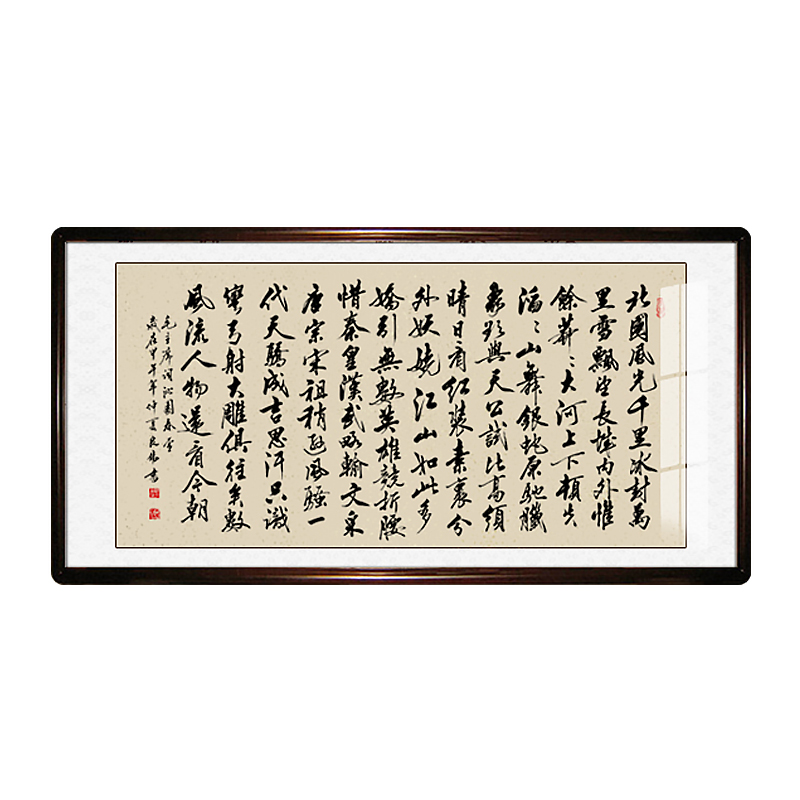 北國風光千里冰封萬
里雪飄望長城内外惟
餘莽〻大河上下頓失
滔〻山舞銀蛇原馳臘
象欲與天公試比高須
晴日看紅裝素裹分
外妖嬈江山如此多
嬌引無數英雄競折腰
惜秦皇漢武略輸文采
唐宗宋祖稍遜風騷一
代天驕成吉思汗只識
彎弓射大雕俱往矣數
風流人物還看今朝
毛主席詞沁園春雪
歲在甲午年仲夏良書